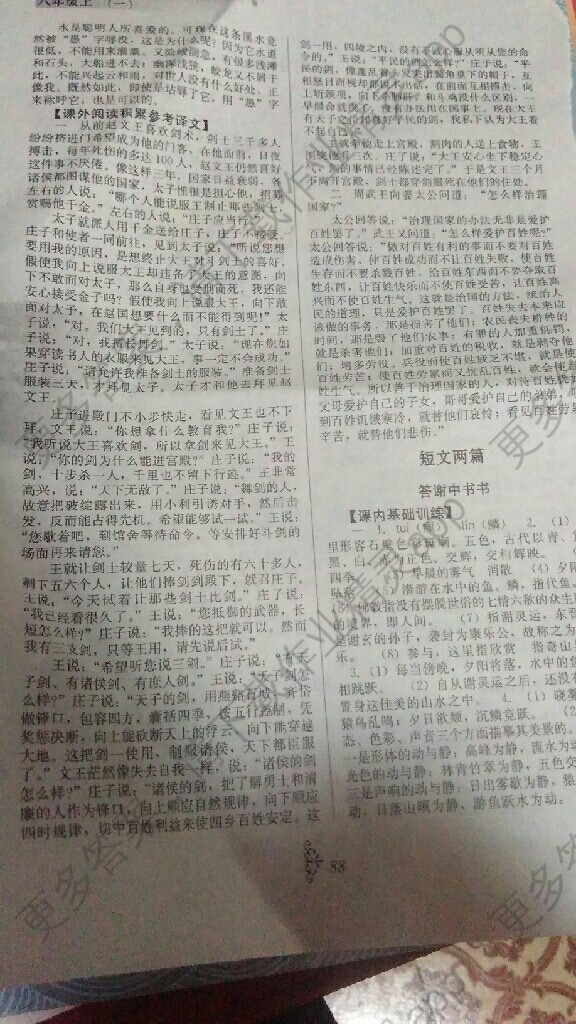 八年级上 （一）
水是聪明人所喜爱的。可现在这条溪水竟
然被“愚”字辱没，这是为什么呢？因为它水道
很低，不能用来灌溉。又险峻湍急，有很多浅滩
和石头，大船进不去；幽深浅狭，蛟龙又不屑于
此，不能兴起云和雨，对世人没有什么好处。正
像我。既然如此，即使是玷辱了它，用“愚”字
来称呼它，也是可以的。
【课外阅读积累参考译文】
从前赵文王喜欢剑术，剑士三千多人
纷纷挤进门希望成为他的门客，在他面前，日夜
搏击，每年死伤的多达100人，赵文王仍然喜好
这件事不厌倦。像这样三年，国家日益衰弱，各
诸侯都图谋他的国家，太子悝很是担心他，招募
左右的人说：“哪个人能说服王制止那些
赏赐他千金。”左右的人说：“庄子应当行。”
太子就派人用千金送给庄子，庄子不接受，
庄子和使者一同前往，见到太子说：“听说您想
要用我的原因，是想终止大王对剑士的喜好，
假使我向上说服大王却违备了大王的意图，向
下不敢面对太子，那么自身遭受刑而死，我还能
安心接受金子吗？假使我向上说服大王，向下敢
面对太子，在赵国想要什么而不能得到呢！”太
子说，“对。我们大王见到的，只有剑士了。”庄
子说：“对，我擅长舞剑。”太子说：“现在您如
果穿读书人的衣服来见大王，事一定不会成功。”
庄子说，“请允许我准备剑士的服装。”准备剑士
服装三天，才拜见太子。太子才和他去拜见赵
文王。
庄子进殿门不小步快走，看见文王也不下
拜，文王说：“你想拿什么教育我？”庄子说：
“我听说大王喜欢剑，所以拿剑来见大王。”王
说：“你的剑为什么能进宫殿？”庄子说：“我的
剑、十步杀一人，千里也不留下行迹。”王非常
高兴，说：“天下无敌了。”庄子说：“舞剑的人，
故意把破绽露出来，用小利引诱对手，然后击
发，反而能占得先机。希望能够试一试。”王说：
“您歇着吧，到馆舍等待命令。等安排好斗剑的
场面再来请您。”
王就让剑士较量七天，死伤的有六十多人，
剩下五六个人，让他们捧剑到殿下，就召庄子。
王说：“今天试着让那些剑士比剑。”庄子说：
“我已经看很久了。”王说：“您抵御的武器，长
短怎么样？”庄子说：“我捧的这把就可以。然而
我有三支剑，只等王用，请先说后试。”
王说：“希望听您说三剑。”庄子说：“有天
子剑、有诸侯剑、有庶人剑。”王说：“天子剑怎
么样？”庄子说：“天子的剑，用燕谿石城、齐岱
做锋口，包容四方，囊括四季，按五行控制，凭
奖惩决断，向上能砍断天上的浮云，向下能穿越
大地。这把剑一使用，制服诸侯，天下都臣服
了。”文王茫然像失去自我一样，说：“诸侯的剑
怎么样？”庄子说：“诸侯的剑，把了解勇士和清
廉的人作为锋口，向上顺应自然规律，向下顺应
四时规律，切中百姓利益来使四乡百姓安定。这
剑一用，四境之内，没有不诚心服从听从您的命
令的。”王说：“平民的剑怎么样？”庄子说：“平
民的剑，像蓬乱着头发突出鬓角垂下的帽子，互
相怒目而视却都说不出话，在前面互相搏击，向
上斩颈项，向下杀肺肝，和斗鸡没什么区别，一
早晨命就没了，没有办法用在国事上。现在大王
有天子之位却喜好平民的剑，我私下认为大王看
不起自己。”
王就牵他走上宫殿，割肉的人送上食物，王
围案绕了三次。庄子说，“大王安心坐下稳定心
气，剑的事情已经陈述完了。”于是文王三个月
不离开宫殿，剑士都穿剑服死在他们的住处。
二、周武王向姜太公问道：“怎么样治理
国家？”
太公回答说：“治理国家的办法无非是爱护
百姓罢了。”武王又问道：“怎么样爱护百姓呢？”
太公回答说：“做对百姓有利的事而不要对百姓
造成伤害，使百姓成功而不让百姓失败，使百姓
生存而不要杀戮百姓，给百姓东西而不要夺取百
姓东西，让百姓快乐而不使百姓受苦，让百姓高
兴而不使百姓生气。这就是治国的方法，统治人
民的道理，只是爱护百姓罢了。百姓失去本来应
该做的事务，那是损害了他们；农民丧失耕种的
时间，那是毁了他们农事；有罪的人加重惩罚，
就是杀害他们；加重对百姓的税收，就是剥夺他
们；增多劳役、兵役而使百姓疲乏不堪，就是使
百姓劳苦；使百姓劳累而又扰乱百姓，就会使百
姓生气。所以善于治理国家的人，对待百姓就
父母爱护自己的子女，哥哥爱护自己的弟弟，
到百姓饥饿寒冷，就替他们哀怜；看见百姓劳
辛苦，就替他们悲伤。”
短文两篇
答谢中书书
【课内基础训练】
1. tuí（颓） lín（鳞） 2.（1）
里形容石壁色彩斑斓。五色，古代以青、
黑、白、赤为正色。交辉，交相辉映。
四季。 早晨的雾气 消散 （4）夕阳
坠落。 潜游在水中的鱼。鳞，指代鱼。
佛教指没有摆脱世俗的七情六欲的众生
的境界，即人间。 （7）指谢灵运，东晋
是谢玄的孙子，袭封为康乐公，故称之为
乐。 （8）参与，这里指欣赏 指奇山
3.（1）每当傍晚，夕阳将落，水中的鱼
相跳跃。 （2）自从谢灵运之后，还没有
置身这佳美的山水之中 4.（1）晓雾
猿鸟乱鸣；夕日欲颓，沉鳞竞跃。 （2）
态、色彩、声音三个方面描摹其美景的。
一是形体的动与静：高峰为静，流水为动
光色的动与静：林青竹翠为静，五色交
三是声响的动与静：日出雾歇为静，猿
动，日落山暝为静，游鱼跃水为动。
88
更多答案请下载作业精灵app